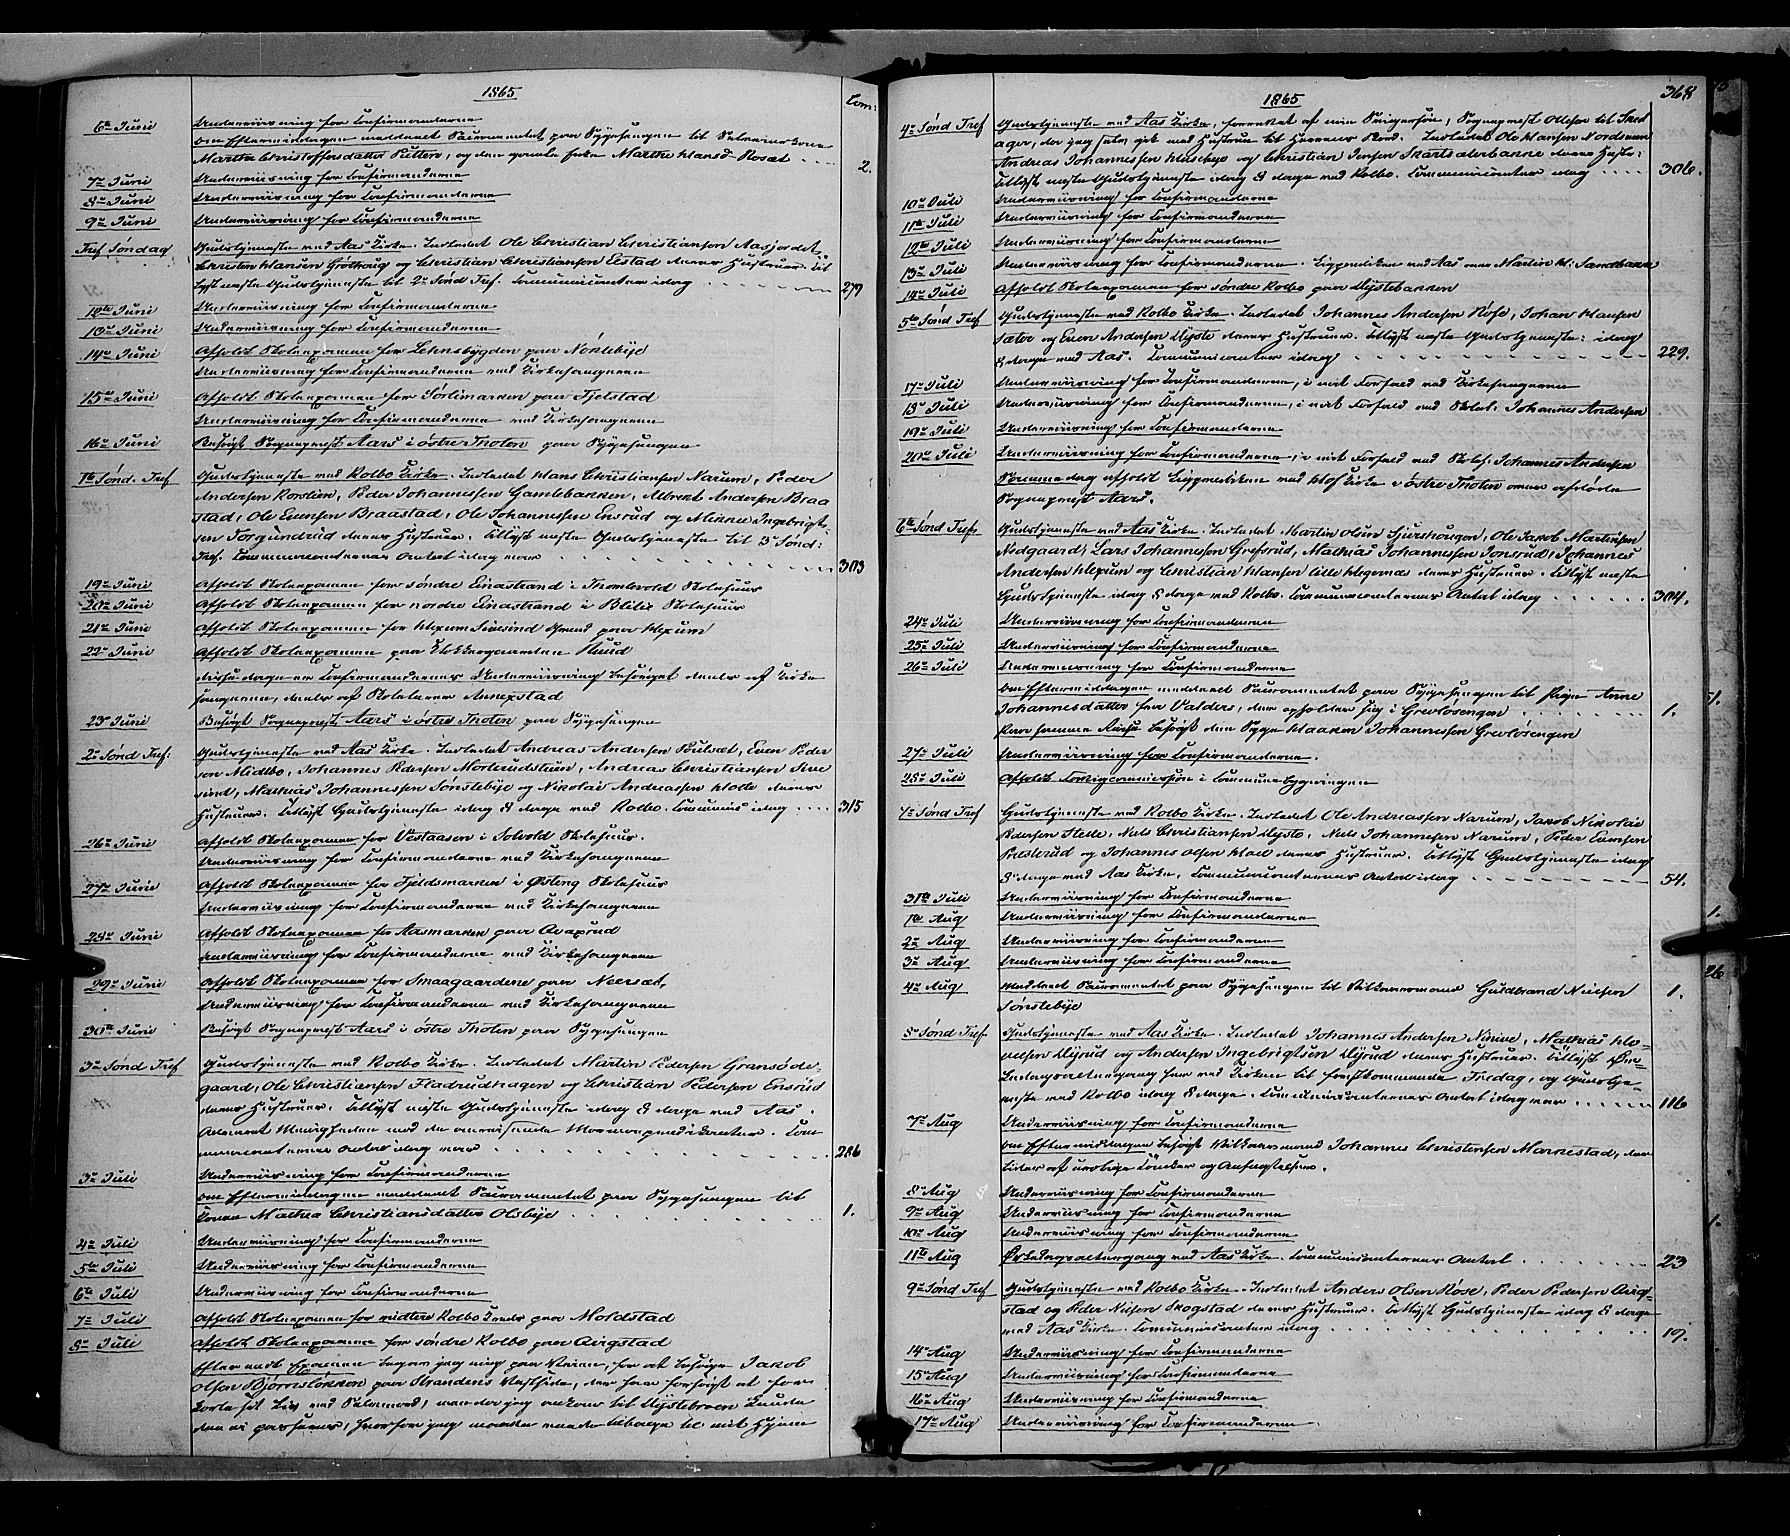 1865
Com:
6te Juni Underviisning for Confirmanderne
om Eftermiddagen meddeelt Sacramentet paa Sygesengen til
Marthe Christoffersdatter Sutter, og den gamle Marthe Hansd. Roset 2.
7de Juni Underviisning for Confirmanderne
8de Juni Underviisning for Confirmanderne
9de Juni Underviisning for Confirmanderne
Tref Søndag Gudstjeneste ved Aas Kirke. Indledet Ole Christian Christiansen Aasjordet,
Christen Hansen Grøthaug og Christian Christiansen Eestad deres Hustruer. Til
lyst næste Gudstjeneste til 2den Sønd Tref. Communicanter idag 279
Juni Underviisning for Confirmanderne
13de Juni Underviisning for Confirmanderne
14de Juni Afholdt Skoleexamen for Lehnsbygden paa Nøklebye
Underviisning for Confirmanderne ved Kirkesangeren
15de Juni Afholdt Skoleexamen for Sørlimarken paa Fjelstad
Underviisning for Confirmanderne ved Kirkesangeren
16de Juni Besøgt Sognepræst Aars i østre Thoten paa Sygesengen
1ste Sønd. Tref Gudstjeneste ved Kolbo Kirke. Indledet Hans Christiansen Narum, Peder
Andersen Korslien, Peder Johannessen Gamlebakken, Albrekt Andersen Braa
stad, Ole Evensen Braastad, Ole Johannessen Ensrud og Mikkel Ingebrigt-
sen Sørgundrud deres Hustruer. Tillyst næste Gudstjeneste til 3die Sønd:
Tref. Communicanternes Antal idag var 303
19de Juni Afholdt Skoleexamen for søndre Einastrand i Thomlevold Skolehuus
20de Juni Afholdt Skoleexamen for nordre Einastrand i Blilie Skolehuus
21de Juni Afholdt Skoleexamen for Hexum Sivesind Grend paa Hexum
22de Juni Afholdt Skoleexamen paa Klokkergaarden Huud
disse dage er Confirmandernes Underviisning besørget deels af Kirke
sangeren, deels af Skolelærer Annexstad
23de Juni Besøgt Sognepræst Aars i østre Thoten paa Sygesengen
2den Sønd Tref: Gudstjeneste ved Aas Kirke. Indledet Andreas Andersen Paulsæt, Even Peder
sen Midtbo, Johannes Pedersen Morlundstuen, Andreas Christiansen Sive
sind, Mathias Johannessen Sønstebye og Nikolai Andreassen Holte deres
Hustruer. Tillyst Gudstjeneste idag 8 dage ved Kolbo. Communic idag 315
26de Juni Afholdt Skoleexamen for Vestaasen i Solvold Skolehuus.
Underviisning for Confirmanderne ved Kirkesangeren
27de Juni Afholdt Skoleexamen for Fjeldsmarken i Østeng Skolehuus
Underviisning for Confirmanderne ved Kirkesangeren
28de Juni Afholdt Skoleexamen for Aasmarken paa
Underviisning for Confirmanderne ved Kirkesangeren
29de Juni Afholdt Skoleexamen for Smaagaardene paa Neersæt,
Underviisning for Confirmanderne ved Kirkesangeren
30te Juni Besøgt Sognepræst Aars i østre Thoten paa Sygesengen
3die Sønd Tref Gudstjeneste ved Kolbo Kirke. Indledet Martin Pedersen Gransøde-
gaard, Ole Christiansen Fladrudhagen og Christian Pedersen Ensrud
deres Hustruer. Tillyst næste Gudstjeneste idag 8 dage ved Aas.
Advaret Menigheden mod de omreisende Mormonprædikanter. Com
municanternes Antal idag var 286
3die Juli Underviisning for Confirmanderne
om Eftermiddagen meddeelt Sacramentet paa Sygesengen til
Konen Mathea Christiansdatter Olsbye 1.
4de Juli Underviisning for Confirmanderne
5te Juli Underviisning for Confirmanderne
6te Juli Underviisning for Confirmanderne
7de Juli Afholdt Skoleexamen for midtre Kolbo Kreds paa Moldstad
8de Juli Afholdt Skoleexamen for søndre Kolbo paa Qvigstad
Efter endt Examen begav jeg mig paa Veien, for at besøge Jakob
Olsen Bjørnsløkken paa Strandens Vestside, der har forsøgt at for
korte sit Liv ved Selvmord, men da jeg ankom til Nystebroen kunde
den ei passeres, hvorfor jeg maatte vende tilbage til mit Hjem
1865
368
4de Sønd Tref Gudstjeneste ved Aas Kirke, forrettet af min Svigersøn, Sogneprest Olsen til Fred
ager, da jeg selv gik med Hustrue til Herrens Bord. Indledet Ole Hansen Nordsveen
Andreas Johannessen Huskelye og Christian Jensen Skartsæterbakke deres Hustr:
Tillyst næste Gudstjeneste idag 8 dage ved Kolbo. Communicanter idag 306.
10de Juli Underviisning for Confirmanderne
11te Juli Underviisning for Confirmanderne
12te Juli Underviisning for Confirmanderne
13de Juli Underviisning for Confirmanderne. Liigprædiken ved Aas over Martin H: Sandbakke
14de Juli Afholdt Skoleexamen for søndre Kolbo paa Nystebakken
5te Sønd Tref Gudstjeneste ved Kolbo Kirke. Indledet Johannes Andersen Røse, Johan Hansen
Sæter og Even Andersen Nyste deres Hustruer. Tillyst næste Gudstjeneste: idag
8 dage ved Aas. Communicanter idag 229.
17de Juli Underviisning for Confirmanderne, i mit Forfald ved Kirkesangeren
18de Juli Underviisning for Confirmanderne, i mit Forfald ved Skolel. Johannes Andersen
19de Juli Underviisning for Confirmanderne
20de Juli Underviisning for Confirmanderne, i mit Forfald ved Skolel. Johannes Andersen
Samme dag afholdt Liigprædiken ved Hof Kirke i østre Thoten over afdøde
Sogneprest Aars.
6te Sønd Tref. Gudstjeneste ved Aas Kirke. Indledet Martin Olsen Sjurshaugen, Ole Jakob Martinsen
Nedgaard, Lars Johannessen Grefsrud, Mathias Johannessen Jonsrud, Johannes
Andersen Hexum og Christian Hansen lille Hegernæs deres Hustruer. Tillyst næste
Gudstjeneste idag 8 dage ved Kolbo. Communicanternes Antal idag 304.
24de Juli Underviisning for Confirmanderne
25de Juli Underviisning for Confirmanderne
26de Juli Underviisning for Confirmanderne
om Eftermiddagen meddeelt Sacramentet paa Sygesengen til Pige Anne
Johannesdatter fra Valders, der opholder sig i Grevlösengen 1.
Paa samme Reise besøgt den syge Haaken Johannessen Grevlösengen
27de Juli Underviisning for Confirmanderne.
28de Juli Afholdt Fattigcommission i Communebygningen
7de Sønd Tref Gudstjeneste ved Kolbo Kirke. Indledet Ole Andreassen Narum, Jakob Nikolai
Pedersen Helle, Niels Christiansen Nyste, Niels Johannessen Narum, Peder Evensen
Præsterud og Johannes Olsen Hoel deres Hustruer. Tillyst Gudstjeneste idag
8 dage ved Aas Kirke. Communicanternes Antal idag 54.
31te Juli Underviisning for Confirmanderne
1ste Aug Underviisning for Confirmanderne
2den Aug Underviisning for Confirmanderne
3die Aug Underviisning for Confirmanderne
4de Aug Meddeelt Sacramentet paa Sygesengen til Vilkaarsmand Guldbrand Nielsen 1.
Sønstebye
8de Sønd Tref Gudstjeneste ved Aas Kirke. Indledet Johannes Andersen Ninive, Mathias Ho-
velsen Nysrud og Andersen Ingebrigtsen Nysrud deres Hustruer. Tillyst Ør-
kedagsaltergang her ved Kirken til førstkommende Fredag, og Gudstje-
neste ved Kolbo idag 8 dage. Communicanternes Antal idag var 116
7de Aug Underviisning for Confirmanderne
om Eftermiddagen besøgt Vilkaarsmand Johannes Christensen Marnestad, der
lider af urolige Tanker og Anfægtelser.
8de Aug Underviisning for Confirmanderne
9de Aug Underviisning for Confirmanderne
10de Aug Underviisning for Confirmanderne
11te Aug Ørkedagsaltergang ved Aas Kirke. Communicanternes Antal 23
9de Sønd Tref Gudstjeneste ved Kolbo Kirke. Indledet Anders Olsen Røse, Peder Pedersen Qvig-
stad og Peder Nilsen Skogstad deres Hustruer. Tillyst Gudstjeneste idag 8 dage
ved Aas Kirke. Communicanter idag 19.
14de Aug Underviisning for Confirmanderne
15de Aug Underviisning for Confirmanderne
16de Aug Underviisning for Confirmanderne
17de Aug Underviisning for Confirmanderne